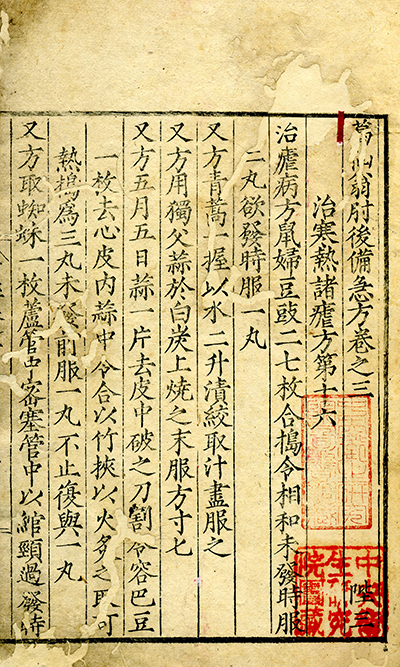 葛仙翁肘後備急方卷之三
治寒熱諸瘧方第十六
治瘧病方鼠婦豆豉二七枚合搗令相和未發時服
二丸欲發時服一丸
又方青蒿一握以水二升漬絞取汁盡服之
又方用獨父蒜於白炭上燒之末服方寸七
又方五月五日蒜一片去皮中破之刀割令容巴豆
一枚去心皮內蒜中令合以竹挾以火炙之取可
熱搗為三丸未發前服一丸不止復與一丸
又方取蜘蛛一枚蘆管中密塞管中以綰頸過發時
陸三